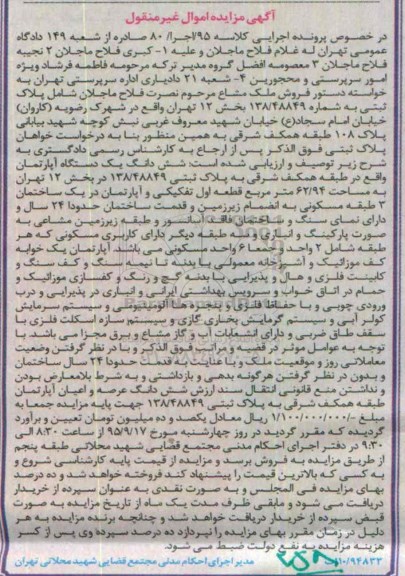 آگهی مزایده اموال غیر منقول
در خصوص پرونده اجرایی کلاسه ۹۵/اجرا/ ۸۰ صادره از شعبه ۱۴۹ دادگاه
عمومی تهران له غلام فلاح ماجلان و علیه ۱- کبری فلاح ماجلان ۲ نجیبه
فلاح ماجلان ۳ معصومه افضل گروه مدیر ترکه مرحومه فاطمه فرشاد ویژه
امور سرپرستی و محجورین ۴- شعبه ۲۱ دادیاری اداره سرپرستی تهران به
خواسته دستور فروش ملک مشاع مرحوم نصرت فلاح ماجلان شامل پلاک
ثبتی به شماره ۱۳۸/۴۸۸۴۹ بخش ۱۲ تهران واقع در شهرک رضویه (کاروان)
خیابان امام سجاد(ع) خیابان شهید معروف غریبی نبش کوچه شهید بیابانی
پلاک ۱۰۸ طبقه همکف شرقی به همین منظور بنا به درخواست خواهان
پلاک ثبتی فوق الذکر پس از ارجاع به کارشناس رسمی دادگستری به
شرح زیر توصیف و ارزیابی شده است: شش دانگ یک دستگاه آپارتمان
واقع در طبقه همکف شرقی به پلاک ثبتی ۱۳۸/۴۸۸۴۹ در بخش ۱۲ تهران
به مساحت ۶۲/۹۴ متر مربع قطعه اول تفکیکی و آپارتمان در یک ساختمان
۳ طبقه مسکونی به انضمام زیرزمین و قدمت ساختمان حدودا ۲۴ سال و
دارای نمای سنگ و ساختمان فاقد آسانسور و طبقه زیرزمین مشاعی به
صورت پارکینگ و انباری و سه طبقه دیگر دارای کاربری مسکونی که هر
طبقه شامل ۲ واحد و جمعا ۶ واحد مسکونی می باشد. آپارتمان یک خوابه
کف موزائیک و آشپزخانه معمولی با بدنه تا نیمه سنگ و کف سنگ و
کابینت فلزی و هال و پذیرایی با بدنه گچ و رنگ و کفسازی موزائیک و
حمام در اتاق خواب و سرویس بهداشتی ایرانی و انباری در پذیرایی و درب
ورودی چوبی و با حفاظ فلزی و پنجره ها آلومینیومی و سیستم سرمایش
کولر آبی و سیستم گرمایش بخاری گازی و سیستم سازه اسکلت فلزی با
سقف طاق ضربی و دارای انشعابات آب و گاز مشاع و برق مجزا می باشد. با
توجه به عوامل موثر در قضیه و مراتب فوق الذکر و با در نظر گرفتن وضعیت
معاملاتی روز و موقعیت ملک و با عنایت به قدمت حدودا ۲۴ سال ساختمان
و بدون در نظر گرفتن هرگونه بدهی و بازداشتی و به شرط بلامعارض بودن
و نداشتن منع قانونی انتقال سند ارزش شش دانگ عرصه و اعیان آپارتمان
طبقه همکف شرقی به پلاک ثبتی ۱۳۸/۴۸۸۴۹ جهت پایه مزایده جمعا به
مبلغ -/۱/۱۰۰/۰۰۰/۰۰۰ ریال معادل یکصد و ده میلیون تومان تعیین و برآورد
گردیده که مقرر گردید در روز چهارشنبه مورخ ۹۵/۹/۱۷ از ساعت ۸:۳۰ الی
۹:۳۰ در دفتر اجرای احکام مدنی مجتمع قضایی شهید محلاتی طبقه پنجم
از طریق مزایده به فروش برسد و مزایده از قیمت پایه کارشناسی شروع و
به کسی که بالاترین قیمت را پیشنهاد کند فروخته خواهد شد و ده درصد
بهای مزایده فی المجلس و به صورت نقدی به عنوان سپرده از خریدار
دریافت می شود و مابقی ظرف مدت یک ماه از تاریخ مزایده به صورت
قبض سپرده از خریدار دریافت خواهد شد و چنانچه برنده مزایده به هر
دلیل در زمان مقرر بهای مزایده را نپردازد ده درصد سپرده وی پس از کسر
هزینه مزایده به نفع دولت ضبط می شود.
۱۱۰/۹۴۸۳۳ مدیر اجرای احکام مدنی مجتمع قضایی شهید محلاتی تهران